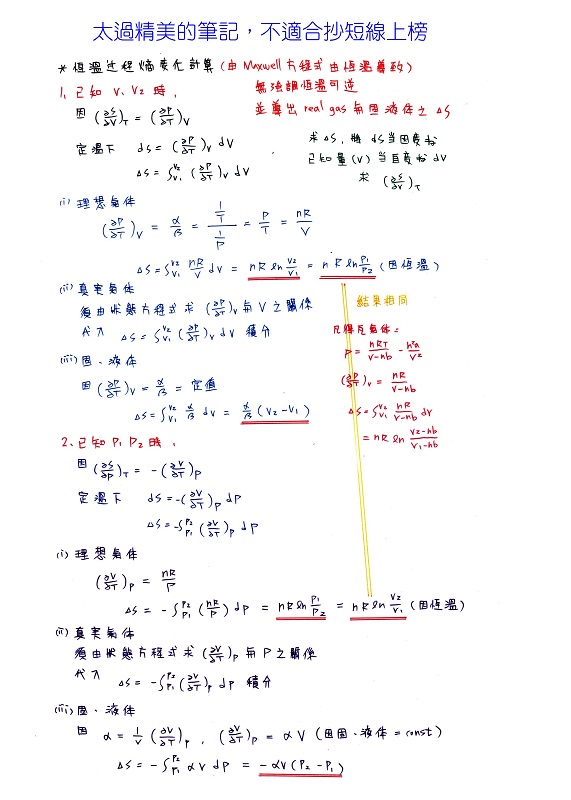 太過精美的筆記，不適合抄短線上榜
* 恆溫過程熵変化計算 (由 Maxwell 方程式由恆溫導致)
1. 已知 V₁ V₂ 時，
無強調恆溫可逆
並導出 real gas 與固液体之 ΔS
因 (∂S/∂V)_T = (∂P/∂T)_V
定溫下 dS = (∂P/∂T)_V dV
ΔS = ∫_V₁^V₂ (∂P/∂T)_V dV
求 ΔS，將 dS 当因変为
已知量 (V) 当自変为 dV
求 (∂S/∂V)_T
(i) 理想気体
(∂P/∂T)_V = α/β = (1/T)/(1/P) = P/T = nR/V
ΔS = ∫_V₁^V₂ nR/V dV = nR ln V₂/V₁ = nR ln P₁/P₂ (因恆溫)
(ii) 真実気体
須由狀態方程式求 (∂P/∂T)_V 與 V 之關係
代入 ΔS = ∫_V₁^V₂ (∂P/∂T)_V dV 積分
結果相同
凡得瓦気体：
P = nRT/(V-nb) - n²a/V²
(∂P/∂T)_V = nR/(V-nb)
ΔS = ∫_V₁^V₂ nR/(V-nb) dV
= nR ln (V₂-nb)/(V₁-nb)
(iii) 固、液体
因 (∂P/∂T)_V = α/β = 定值
ΔS = ∫_V₁^V₂ α/β dV = α/β (V₂-V₁)
2. 已知 P₁ P₂ 時，
因 (∂S/∂P)_T = -(∂V/∂T)_P
定溫下 dS = -(∂V/∂T)_P dP
ΔS = -∫_P₁^P₂ (∂V/∂T)_P dP
(i) 理想気体
(∂V/∂T)_P = nR/P
ΔS = -∫_P₁^P₂ (nR/P) dP = nR ln P₁/P₂ = nR ln V₂/V₁ (因恆溫)
(ii) 真実気体
須由狀態方程式求 (∂V/∂T)_P 與 P 之關係
代入 ΔS = -∫_P₁^P₂ (∂V/∂T)_P dP 積分
(iii) 固、液体
因 α = 1/V (∂V/∂T)_P , (∂V/∂T)_P = αV (因固、液体 = const)
ΔS = -∫_P₁^P₂ αV dP = -αV (P₂-P₁)